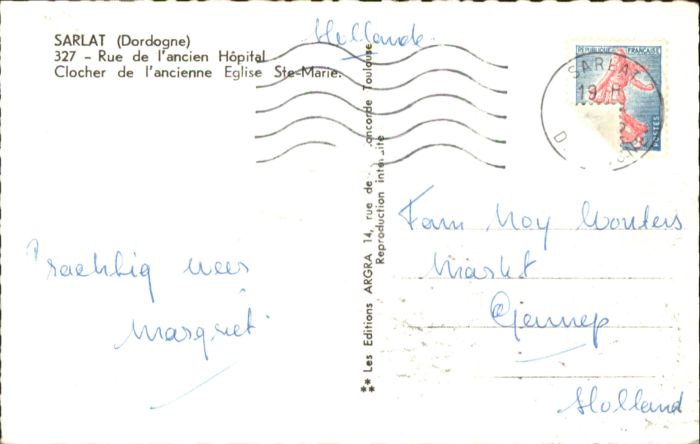 SARLAT (Dordogne)
327 - Rue de l'ancien Hôpital
Clocher de l'ancienne Eglise Ste-Marie.
Hollande
REPUBLIQUE FRANÇAISE
POSTES
SARLAT
19 H
Prachtig weer
Margriet
** Les Editions ARGRA 14, rue de oncorde Toulouse
Reproduction inter ite
Fam Noy Wouters
Markt
Gennep
Holland